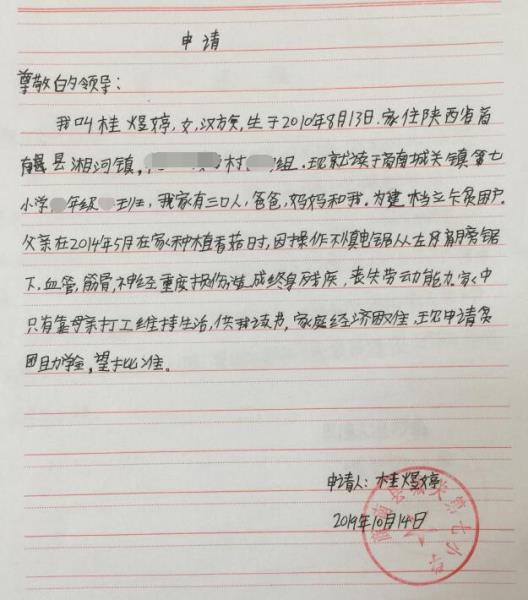 申请
尊敬的领导：
我叫桂煜婷，女，汉族，生于2010年8月13日.家住陕西省商
南县湘河镇，村组.现就读于商南城关镇第七
小学年级班，我家有三口人，爸爸，妈妈和我。为建档立卡贫困户.
父亲在2014年5月在家种植香菇时，因操作不慎电锯从左牙肩膀锯
下，血管，筋骨，神经重度损伤造成终身残疾，丧失劳动能力，家中
只有靠母亲打工维持生活，供我读书，家庭经济困难，现申请贫
困助学金，望批准。
申请人：桂煜婷
2019年10月14日